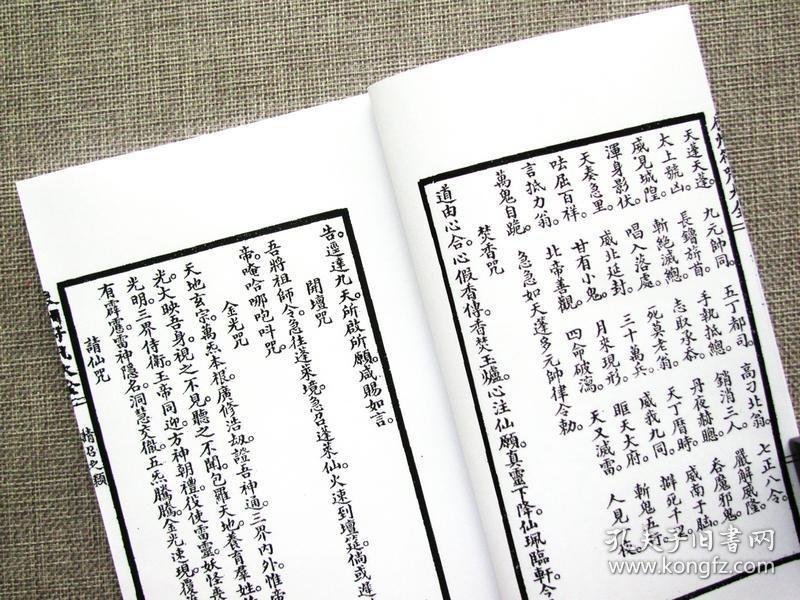 天蓬天蓬。 九元帥同。 五丁都司。 高刁北翁。 七正八令。
太上號山。 長鑪旂首。 手執抵總。 銷消三人。 嚴解威隆。
威見城隍。 斬絕滅總。 志取水忝。 丹夜赫聰。 吞魔邪鬼。
渾身影伏。 唱入落處。 死莫老翁。 天丁曆時。 威南于
天奏急里。 威北延封。 三十萬兵。 威我九同。 死千里
呿屈百祥。 甘有小鬼。 月來現形。 眶天大府。 斬鬼五
言抵力翁。 北帝善觀。 四命破瀉。 天叉滅雷。 人見
萬鬼自跪。 急急如天蓬多元帥律令勅。
焚香咒
道由心合心假香傳香焚玉爐心注仙願真靈下降仙珮臨軒今
告。逕達九天。所啟所願。咸賜如言。
開壇咒
吾將祖師令。急往蓬萊境。急召蓬萊仙。火速到壇筵。倘或遲
帝。唵哈哪咆吽。
金光咒
天地玄宗。萬炁本根。廣修浩劫。證吾神通。三界內外。惟
光大映吾身。視之不見。聽之不聞。包羅天地。養育羣
光明三界侍衛。五帝同迎。万神朝禮。役使雷靈。妖怪喪
有霹靂。雷神隱名。洞慧大徹。五炁騰騰。金光速現。覆
請仙咒
請召之類
孔夫子旧書网
www.kongfz.com